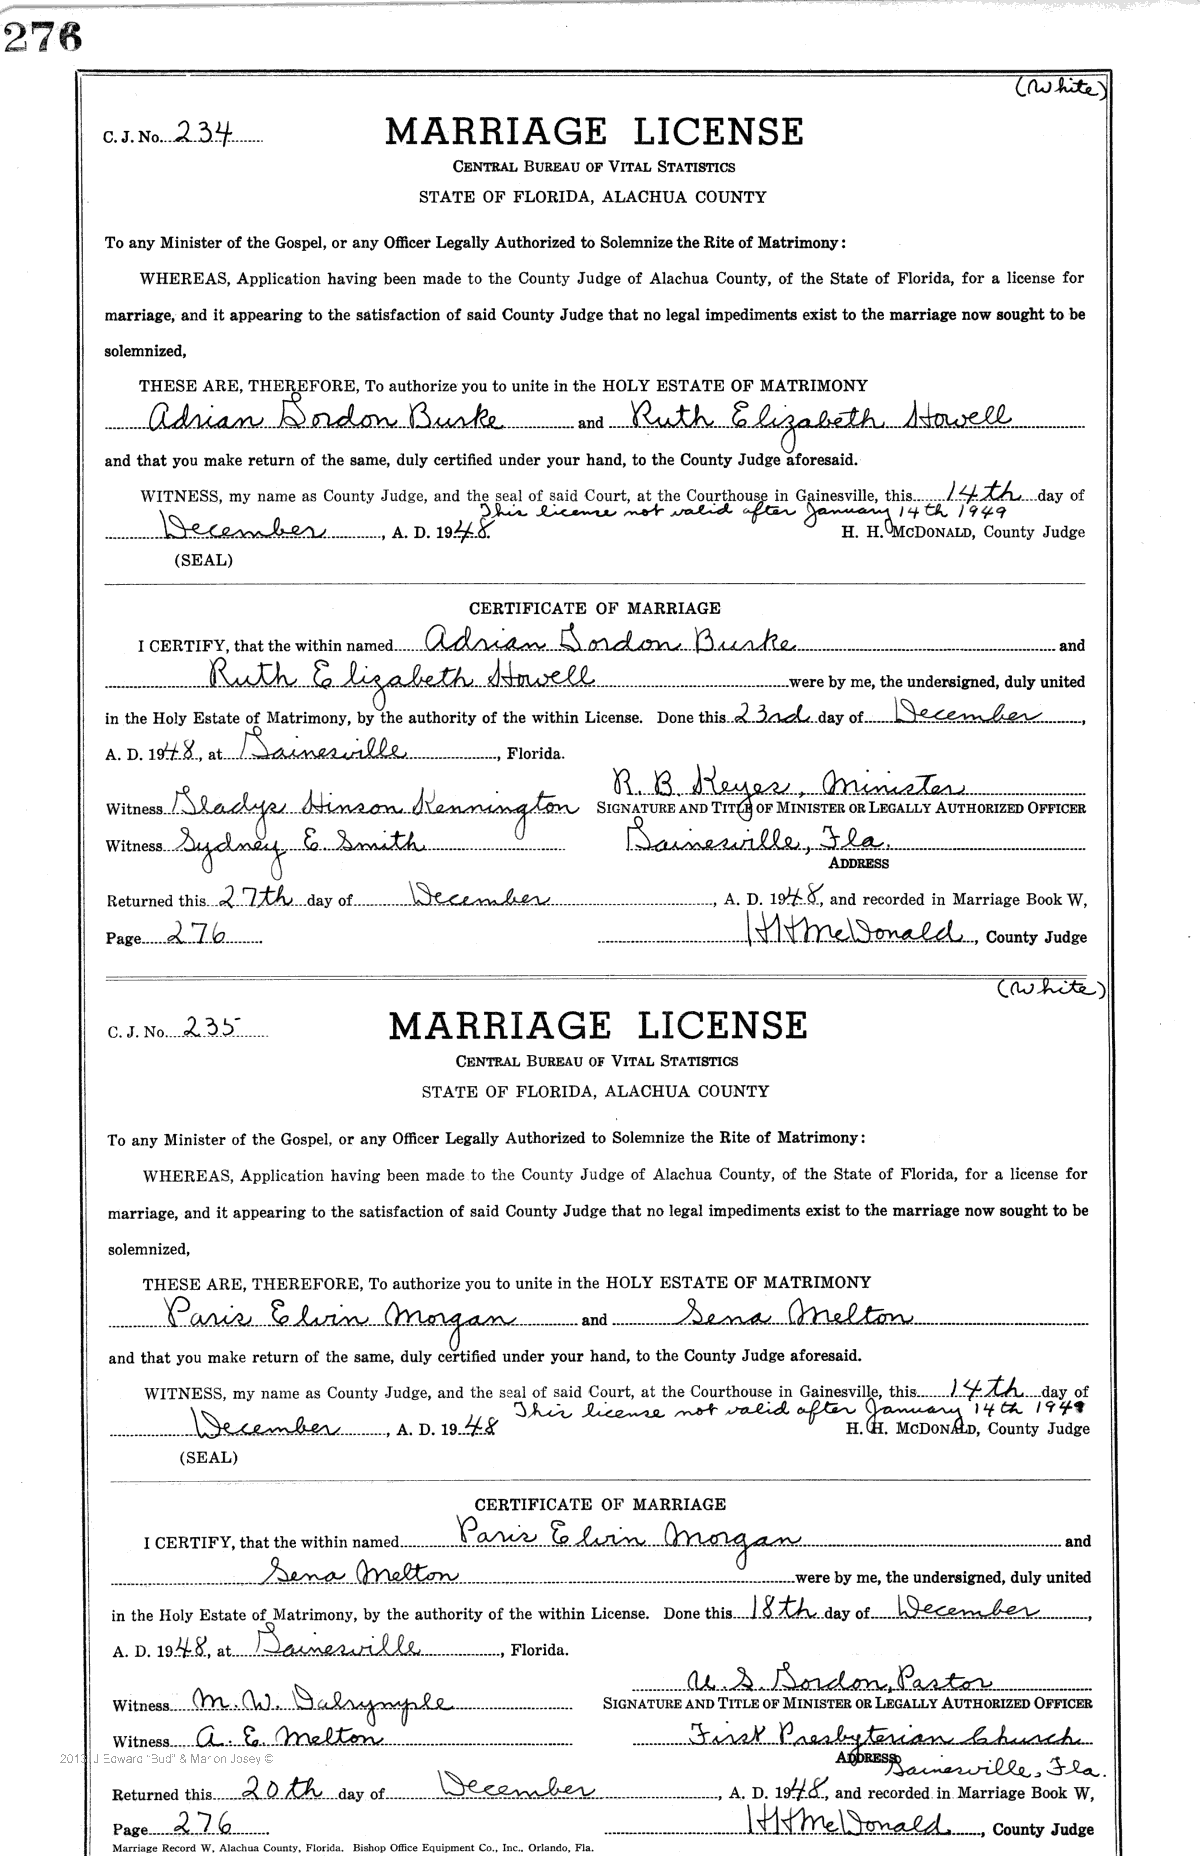 276
(White)
C. J. No. 234
MARRIAGE LICENSE
CENTRAL BUREAU OF VITAL STATISTICS
STATE OF FLORIDA, ALACHUA COUNTY
To any Minister of the Gospel, or any Officer Legally Authorized to Solemnize the Rite of Matrimony:
WHEREAS, Application having been made to the County Judge of Alachua County, of the State of Florida, for a license for
marriage, and it appearing to the satisfaction of said County Judge that no legal impediments exist to the marriage now sought to be
solemnized,
THESE ARE, THEREFORE, To authorize you to unite in the HOLY ESTATE OF MATRIMONY
Adrian Gordon Burke and Ruth Elizabeth Howell
and that you make return of the same, duly certified under your hand, to the County Judge aforesaid.
WITNESS, my name as County Judge, and the seal of said Court, at the Courthouse in Gainesville, this 14th day of
This license not valid after January 14th 1949
December, A. D. 1948. H. H. MCDONALD, County Judge
(SEAL)
CERTIFICATE OF MARRIAGE
I CERTIFY, that the within named Adrian Gordon Burke and
Ruth Elizabeth Howell were by me, the undersigned, duly united
in the Holy Estate of Matrimony, by the authority of the within License. Done this 23rd day of December,
A. D. 1948, at Gainesville, Florida.
R. B. Keyes, Minister
Witness Gladys Hinson Kennington SIGNATURE AND TITLE OF MINISTER OR LEGALLY AUTHORIZED OFFICER
Witness Sydney E. Smith Gainesville, Fla.
ADDRESS
Returned this 27th day of December, A. D. 1948, and recorded in Marriage Book W,
Page 276 HHMcDonald, County Judge
(White)
C. J. No. 235
MARRIAGE LICENSE
CENTRAL BUREAU OF VITAL STATISTICS
STATE OF FLORIDA, ALACHUA COUNTY
To any Minister of the Gospel, or any Officer Legally Authorized to Solemnize the Rite of Matrimony:
WHEREAS, Application having been made to the County Judge of Alachua County, of the State of Florida, for a license for
marriage, and it appearing to the satisfaction of said County Judge that no legal impediments exist to the marriage now sought to be
solemnized,
THESE ARE, THEREFORE, To authorize you to unite in the HOLY ESTATE OF MATRIMONY
Paris Elvin Morgan and Sena Melton
and that you make return of the same, duly certified under your hand, to the County Judge aforesaid.
WITNESS, my name as County Judge, and the seal of said Court, at the Courthouse in Gainesville, this 14th day of
This license not valid after January 14th 1949
December, A. D. 1948 H. H. MCDONALD, County Judge
(SEAL)
CERTIFICATE OF MARRIAGE
I CERTIFY, that the within named Paris Elvin Morgan and
Sena Melton were by me, the undersigned, duly united
in the Holy Estate of Matrimony, by the authority of the within License. Done this 18th day of December,
A. D. 1948, at Gainesville, Florida.
U. S. Gordon, Pastor
Witness M. W. Dalrymple SIGNATURE AND TITLE OF MINISTER OR LEGALLY AUTHORIZED OFFICER
Witness A. E. Melton First Presbyterian Church
2013 J Edward "Bud" & Marion Josey ©
ADDRESS Gainesville, Fla.
Returned this 20th day of December, A. D. 1948, and recorded in Marriage Book W,
Page 276 HHMcDonald, County Judge
Marriage Record W, Alachua County, Florida. Bishop Office Equipment Co., Inc., Orlando, Fla.